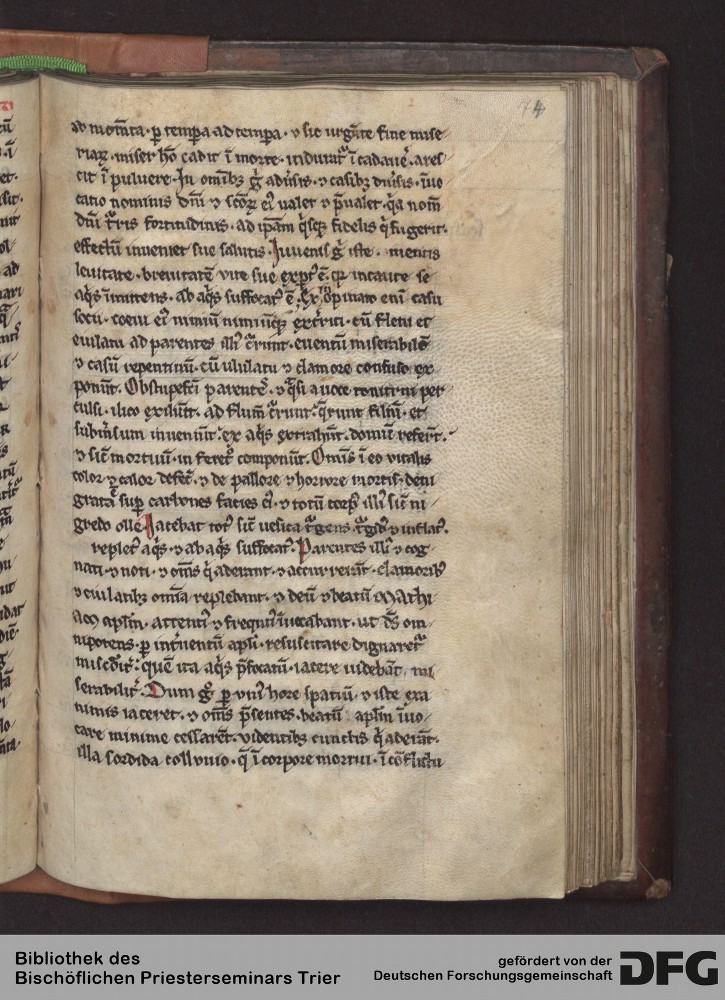 74
ad mom̄ta · ꝑ temp̄a ad temp̄a · ⁊ sic urgēte fine mise
riaꝝ · miser hō cadit ī morte · uiduat᷑ ī cadauē · ares
cit ī puluere · In omībꝫ g̊ adūsis · ⁊ casibꝫ diūsis · īuo
catio nominis dn̄i ⁊ scōꝝ eiꝰ ualet ⁊ p̄ualet · q̄a nom̄
dn̄i t᷑ris fortitudinis · ad ip̄am q̇sqꝫ fidelis q̇ fugerit ·
effectū inueniet sue salutis · Iuuenis g̊ iste · mentis
leuitate · breuitatē uite sue exꝑtꝰ ē · q̄ incaute se
aq̇s īmittens · ab aq̇s suffocatꝰ ē · Ex īopinato eni casu
socii · coeui eiꝰ nimiū nimiūqꝫ ext᷑riti · cū fletu et
eiulatu ad parentes illiꝰ c᷑runt · euentū miserabilē
⁊ casū repentinū · cū ululatu ⁊ clamore confuso ex
ponūt · Obstupefcī parentes · ⁊ q̄si a uoce tonitrui per
culsi · ilico exiliūt · ad flum̄ c᷑runt · q̄runt filiū · et
subm̄sum inueniūt · ex aq̇s extrahūt · domū refer̄t ·
⁊ sic̄ mortuū · in feretꝰ componūt · Om̄is ī eo uitalis
color ⁊ calor defēc · ⁊ de pallore ⁊ horrore mortis · deni
grata sup̄ carbones facies eiꝰ · ⁊ totū corpꝰ illiꝰ sic̄ ni
gredo olle · Iacebat totꝰ sic̄ uesica t᷑gens · t᷑gidꝰ ⁊ inflatꝰ ·
repletꝰ aq̇s · ⁊ ab aq̇s suffocatꝰ · Parentes illiꝰ ⁊ cog
nati · ⁊ noti · ⁊ om̄s q̇ aderant · ⁊ accurrerūt · clamoribꝰ
⁊ eiulatibꝫ om̄ia replebant · ⁊ deū ⁊ beatū Mathi
am apl̄m · attentiꝰ ⁊ frequntiꝰ īuocabant · ut dſ̄ om
nipotens · ꝑ int᷑uentū apl̄i · resuscitare dignaret᷑
misedit᷑ · quē ita aq̇s p̄focatū · iacere uidebāt mi
serabilit᷑ · Dum g̊ ꝑ uniꝰ hore spatiū · ⁊ iste exa
nimis iaceret · ⁊ om̄s p̄sentes · beatū apl̄m īuo
care minime cessarēt · uidentibꝫ cunctis q̇ aderāt ·
illa sordida colluuio · q̄ ī corpore mortui · ī cōflictu
Bibliothek des
Bischöflichen Priesterseminars Trier
gefördert von der
Deutschen Forschungsgemeinschaft
DFG